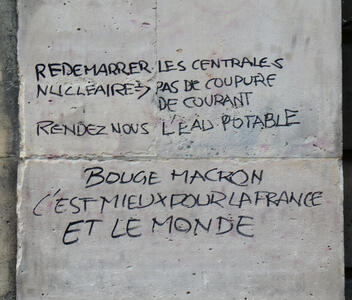 REDEMARRER LES CENTRALES
NUCLÉAIRES PAS DE COUPURE
DE COURANT
RENDEZ NOUS L'EAU POTABLE
BOUGE MACRON
C'EST MIEUX POUR LA FRANCE
ET LE MONDE